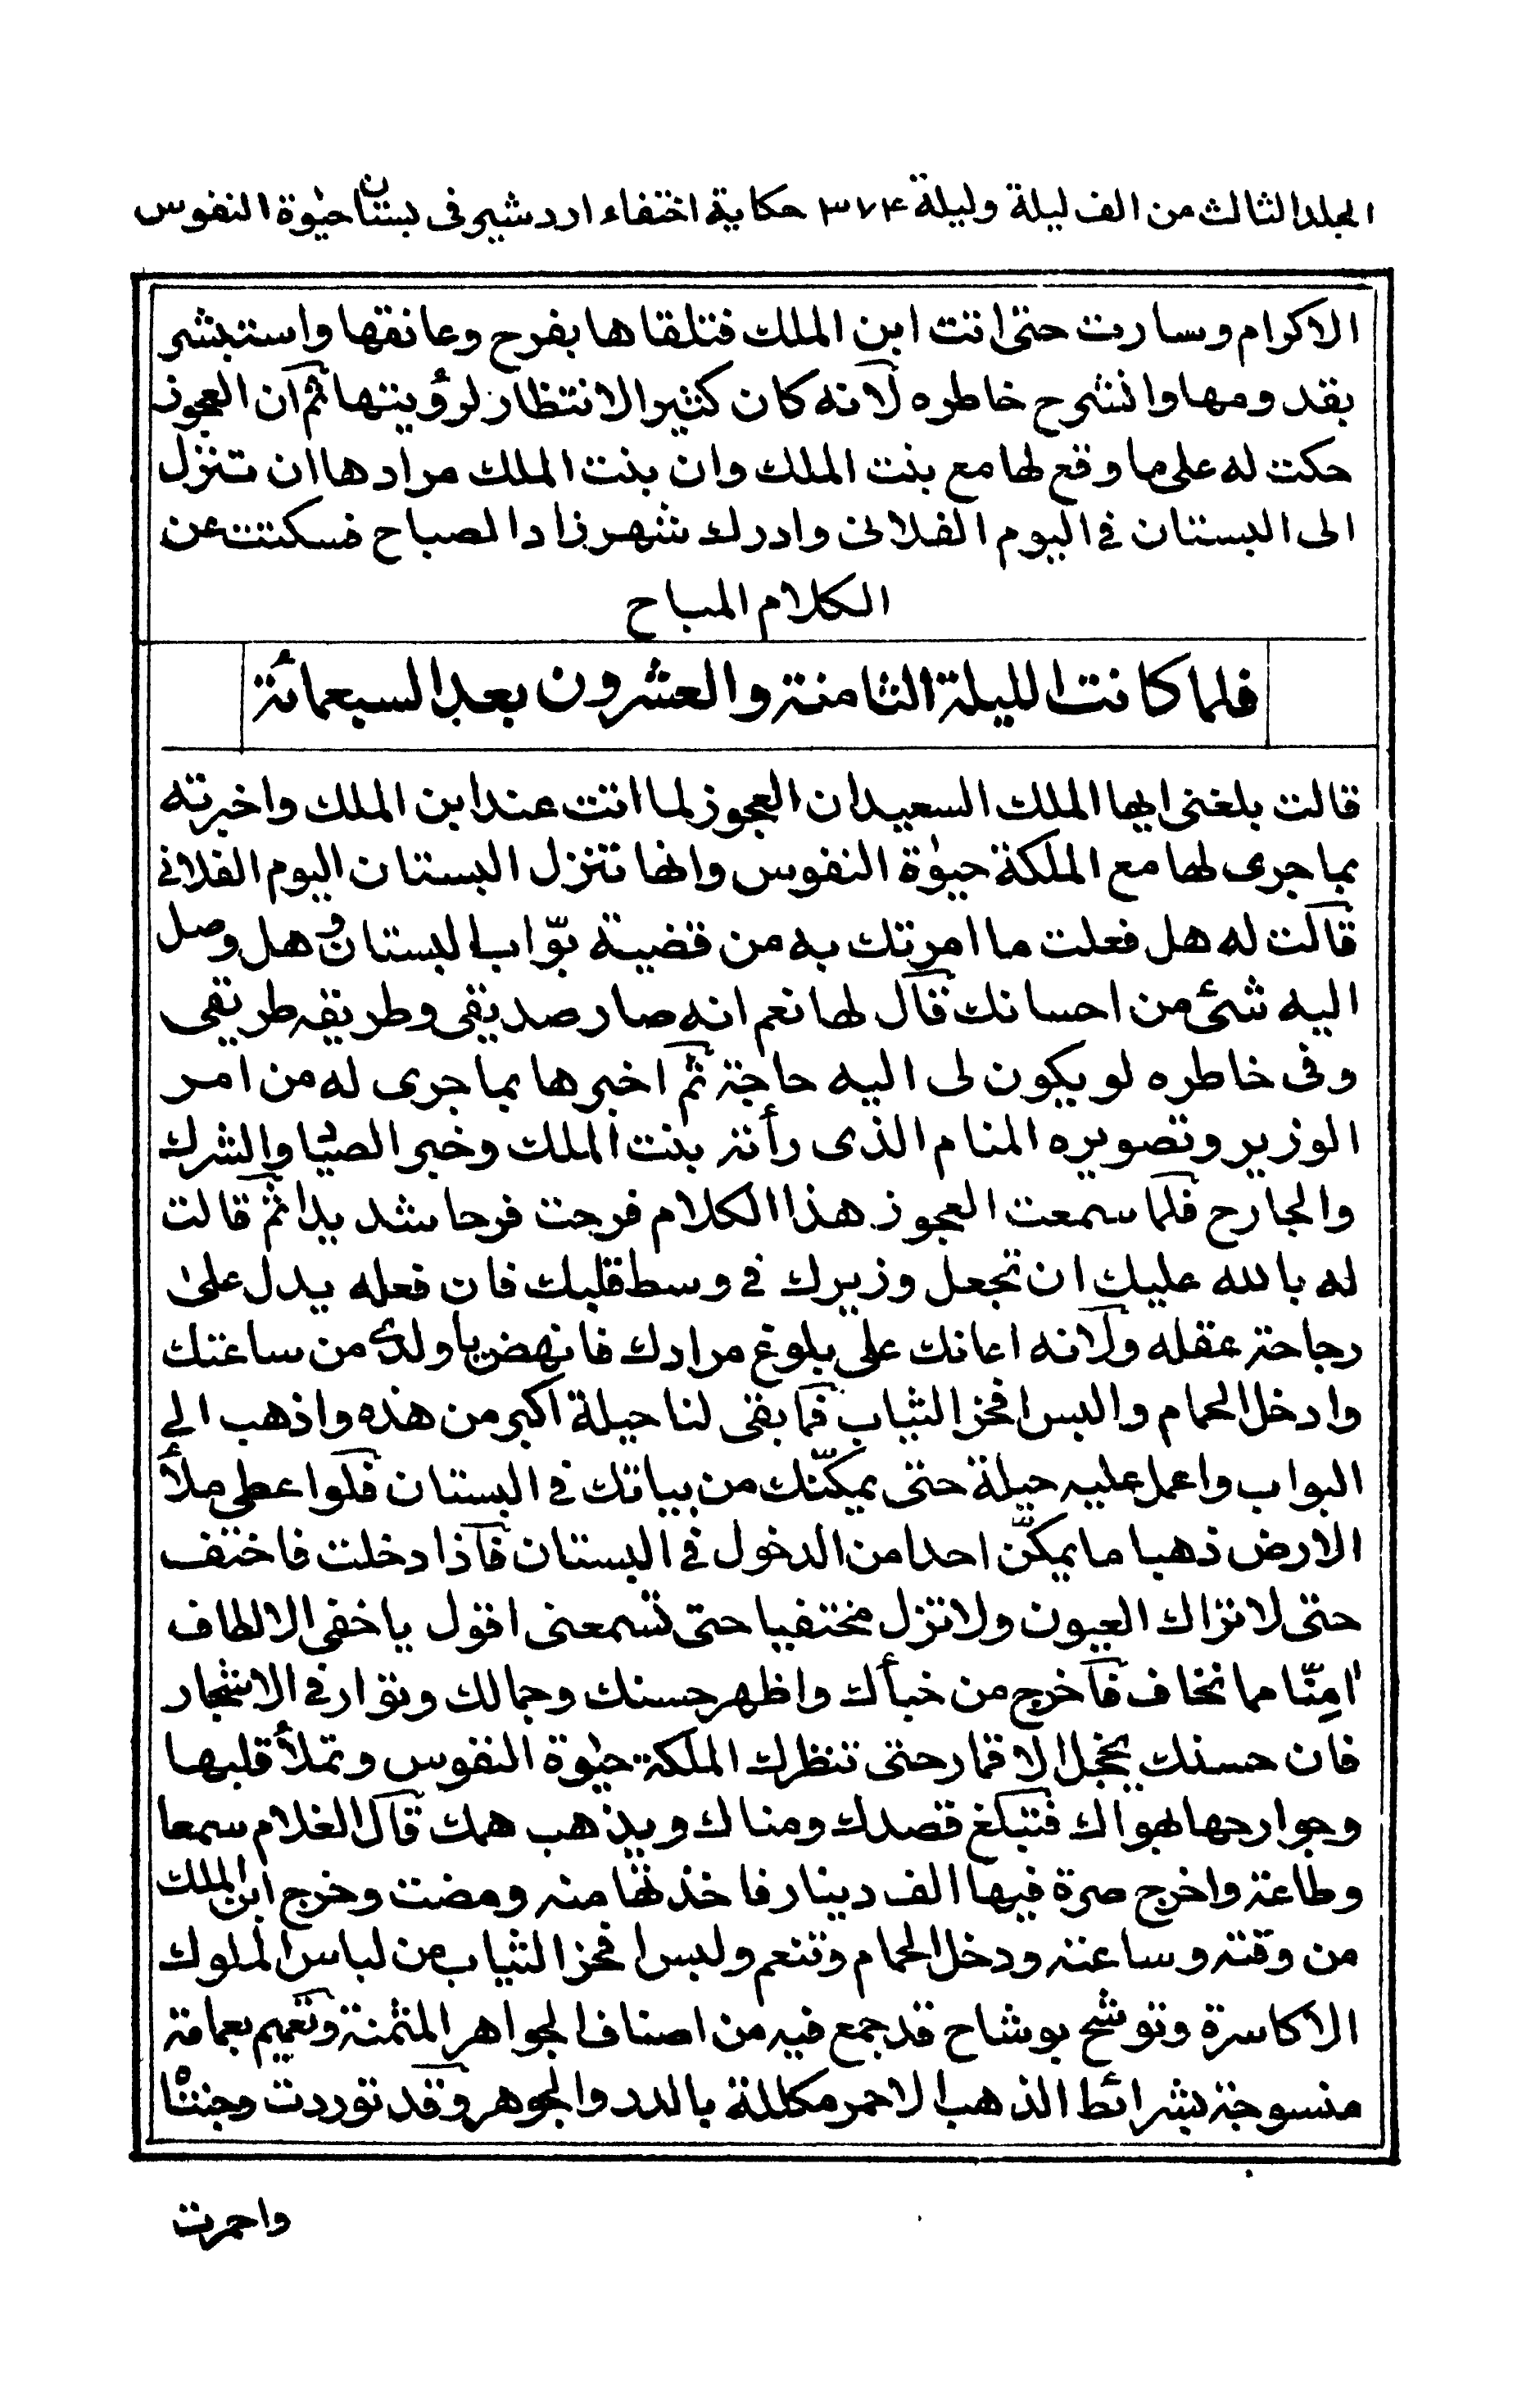 المجلد الثالث من الف ليلة وليلة ٣٧٤ حكاية اختفاء اردشير فى بستان حيٰوة النفوس
الاكرام وسارت حتى اتت ابن الملك فتلقاها بفرح وعانقها واستبشر
بقدومها وانشرح خاطره لانه كان كثير الانتظار لرؤيتها ثم ان العجوز
حكت له على ما وقع لها مع بنت الملك وان بنت الملك مرادها ان تنزل
الى البستان فى اليوم الفلانى وادرك شهرزاد الصباح فسكتت عن
الكلام المباح
فلما كانت الليلة الثامنة والعشرون بعد السبعمائة
قالت بلغنى ايها الملك السعيد ان العجوز لما اتت عند ابن الملك واخبرته
بما جرى لها مع الملكة حيٰوة النفوس وانها تنزل البستان اليوم الفلانى
قالت له هل فعلت ما امرتك به من قضية بوّاب البستان وهل وصل
اليه شئ من احسانك قال لها نعم انه صار صديقى وطريقه طريقى
وفى خاطره لو يكون لى اليه حاجة ثم اخبرها بما جرى له من امر
الوزير وتصويره المنام الذى رأته بنت الملك وخبر الصياد والشرك
والجارح فلما سمعت العجوز هذا الكلام فرحت فرحا شديدا ثم قالت
له بالله عليك ان تجعل وزيرك فى وسط قلبك فان فعله يدل على
رجاحة عقله ولانه اعانك على بلوغ مرادك فانهض يا ولدى من ساعتك
وادخل الحمام والبس افخر الثياب فما بقى لنا حيلة اكبر من هذه واذهب الى
البواب واعمل عليه حيلة حتى يمكّنك من بياتك فى البستان فلو اعطى ملأ
الارض ذهبا ما يمكّن احدا من الدخول فى البستان فاذا دخلت فاختف
حتى لا تراك العيون ولا تزل مختفيا حتى تسمعنى اقول يا خفى الالطاف
اٰمِنّا مما نخاف فاخرج من خبأك واظهر حسنك وجمالك وتوار فى الاشجار
فان حسنك يخجل الاقمار حتى تنظرك الملكة حيٰوة النفوس وتملأ قلبها
وجوارحها بهواك فتبلغ قصدك ومناك ويذهب همك قال الغلام سمعا
وطاعة واخرج صرة فيها الف دينار فاخذتها منه ومضت وخرج ابن الملك
من وقته وساعته ودخل الحمام وتنعم ولبس افخر الثياب من لباس الملوك
الاكاسرة وتوشح بوشاح قد جمع فيه من اصناف الجواهر المثمنة وتعمم بعمامة
منسوجة بشرائط الذهب الاحمر مكللة بالدر والجوهر وقد توردت وجنتاه
واحمرت